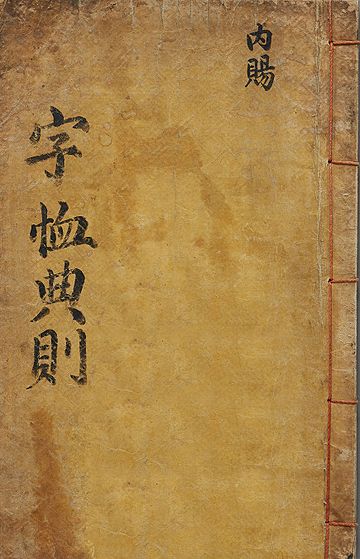 内賜
字恤典則